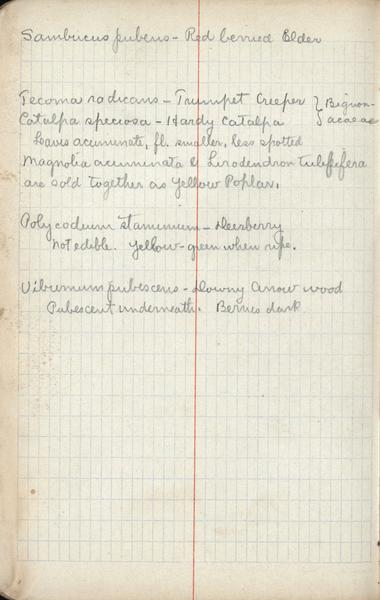 Sambucus pubens - Red berried Elder
Tecoma radicans - Trumpet Creeper } Bignon-
Catalpa speciosa - Hardy Catalpa } aceae
Leaves acuminate, fl. smaller, less spotted
Magnolia acuminata & Lirodendron tulipifera
are sold together as Yellow Poplar.
Polycodium stamineum - Deerberry
Not edible. Yellow-green when ripe.
Viburnum pubescens - Downy Arrow wood
Pubescent underneath. Berries dark